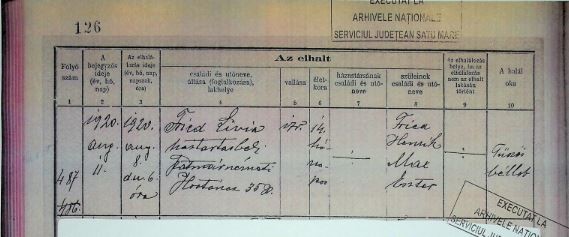 126
EXECUTAT LA
ARHIVELE NAȚIONALE
SERVICIUL JUDEȚEAN SATU MARE
Folyó szám
A bejegyzés ideje (év, hó, nap)
Az elhalálozás ideje (év, hó, nap, napszak, óra)
Az elhalt
családi és utóneve, állása (foglalkozása), lakhelye
vallása
életkora
házastársának családi és utóneve
szüleinek családi és utóneve
az elhalálozás helye, ha az elhalálozás nem az elhalt lakásán történt
A halál oka
1 2 3 4 5 6 7 8 9 10
487
1920. aug. 11.
1920. aug. 8. du. 6 óra
Fried Livia
háztartásbeli
Szatmárnémeti
Hostánc 35
izr.
14
Fried
Henrik
Eszter
EXECUTAT LA
ARHIVELE NAȚION
SERVICIUL JUDE